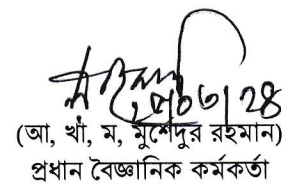 (আ, খাঁ, ম, মুর্শেদুর রহমান)
প্রধান বৈজ্ঞানিক কর্মকর্তা